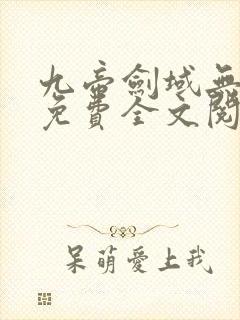 九帝劍域無
免費全文閱
呆萌愛上我